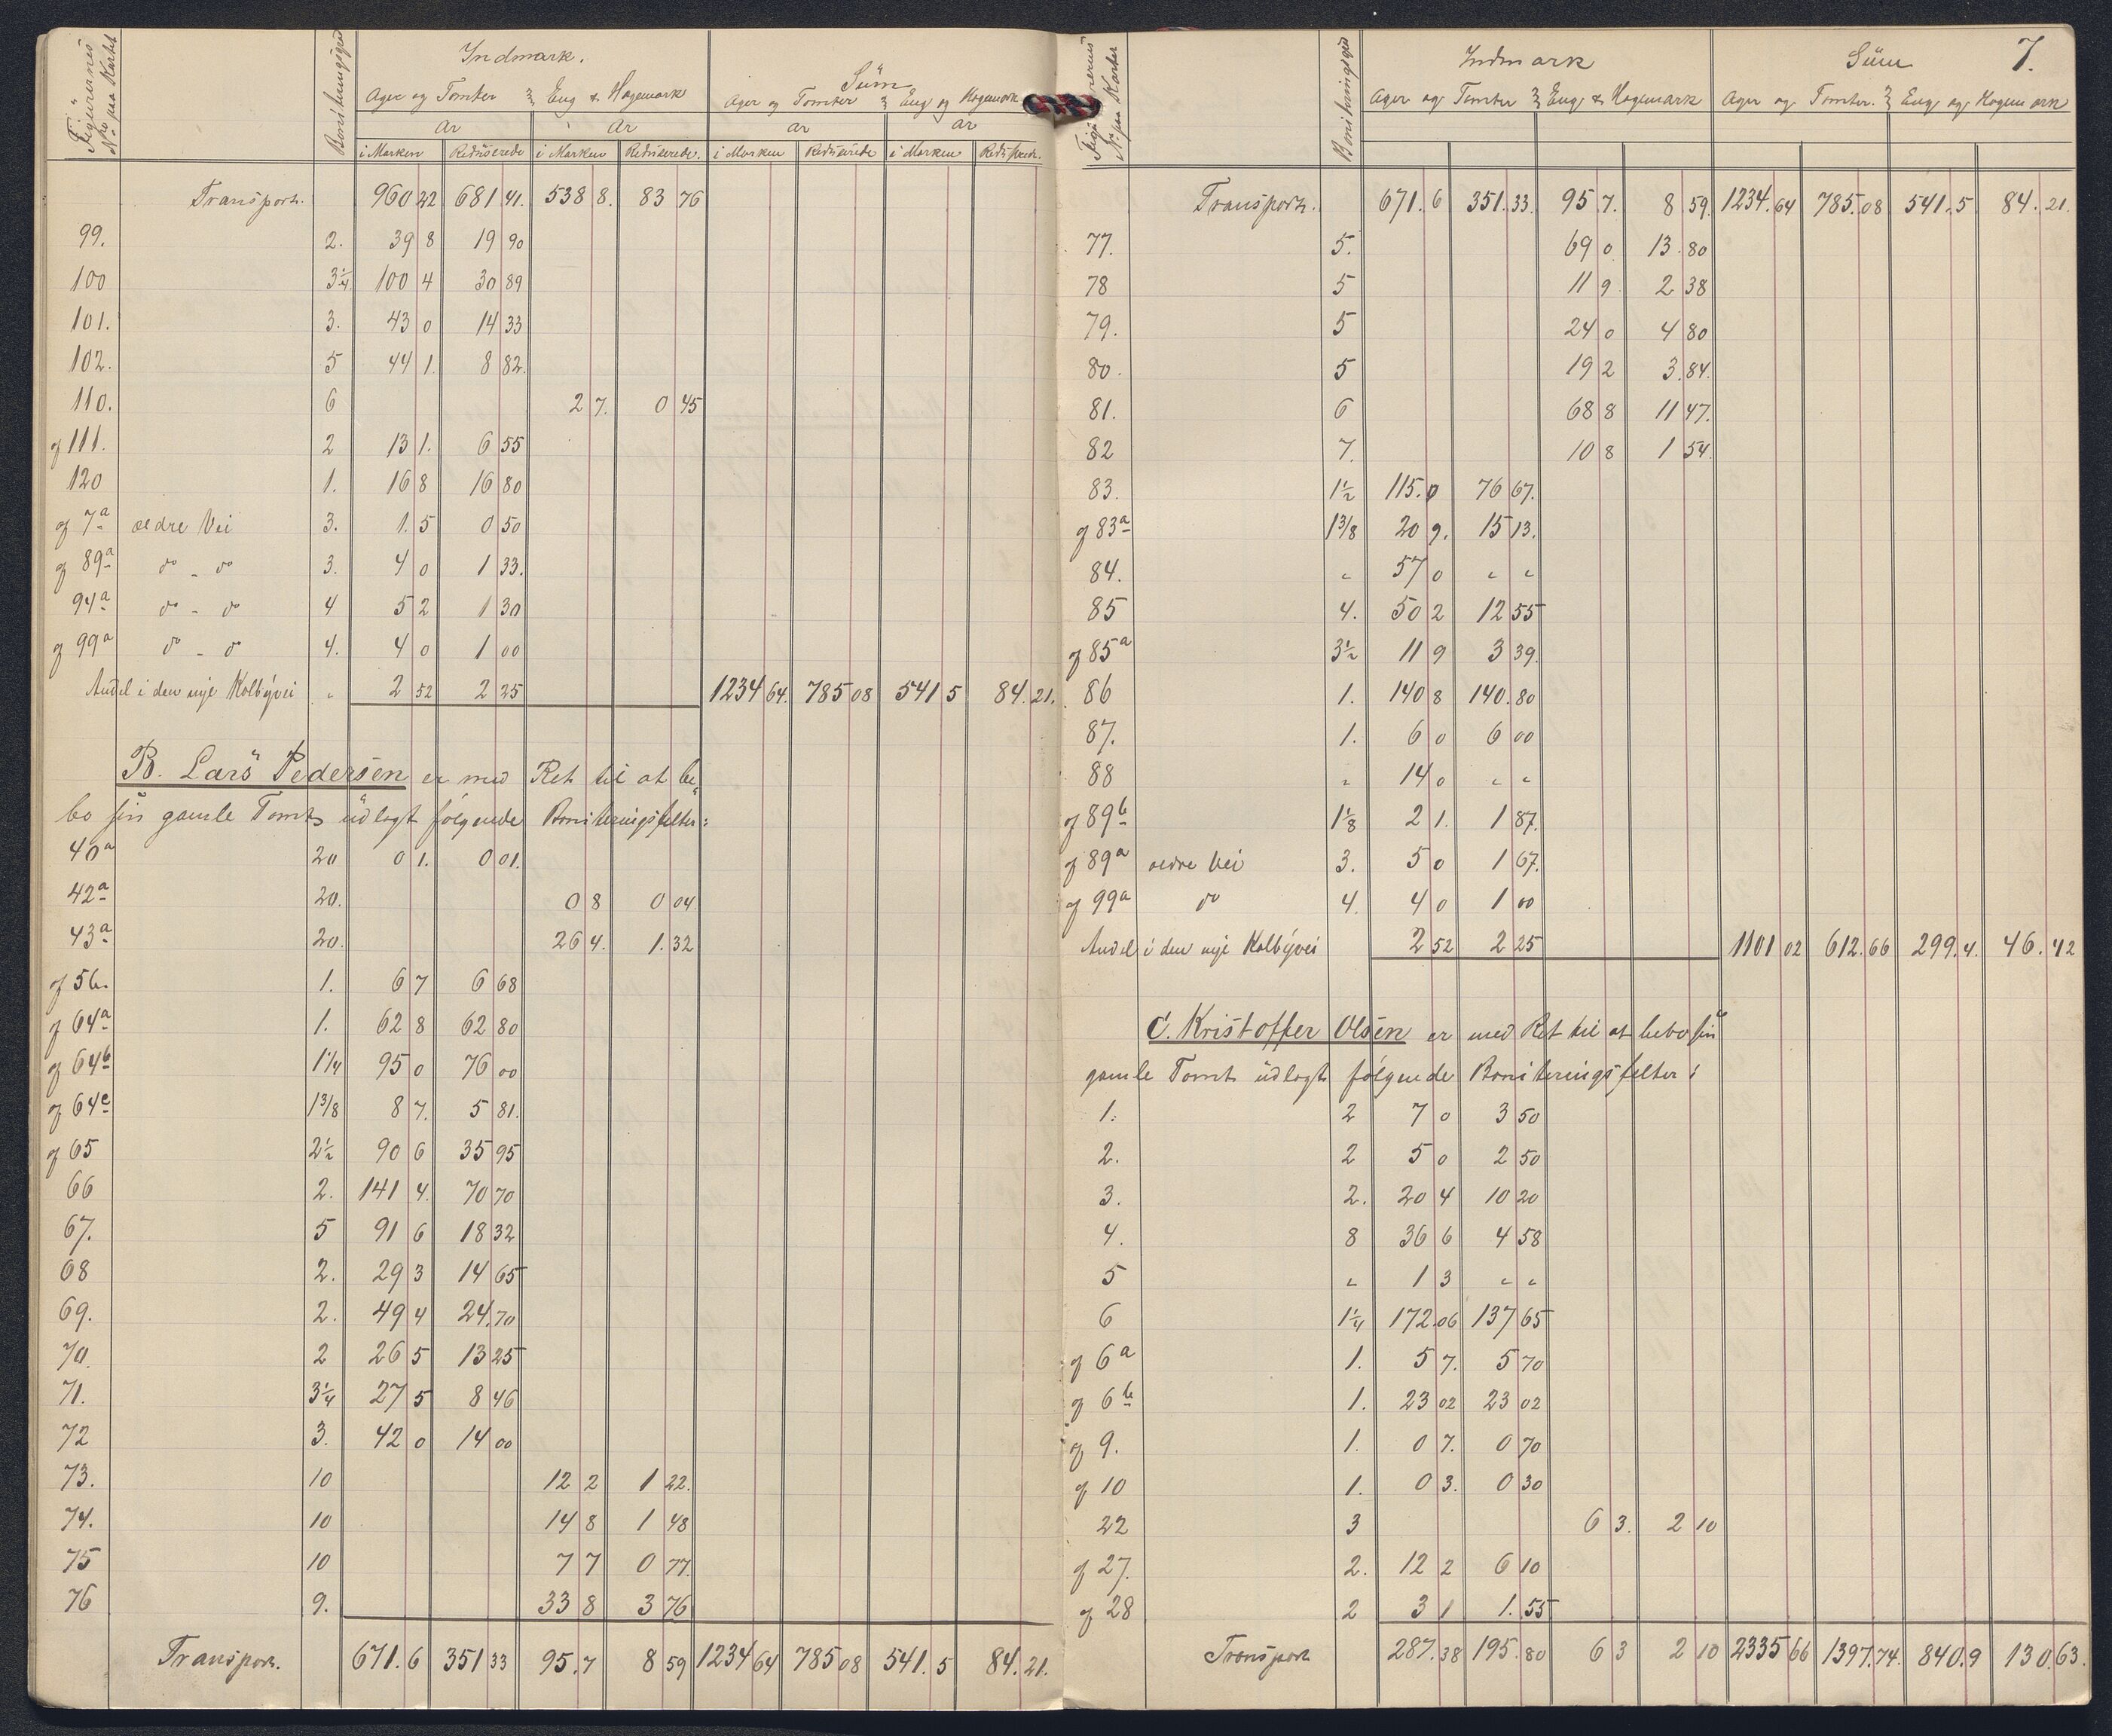 Figurernes No paa Kartet
Boniteringsgrad
Indmark.
Süm
Ager og Tomter } Eng & Hagemark
Ager og Tomter } Eng og Hagemark
Ar Ar ar ar
i Marken Redüserede i Marken Redüserede. i Marken Redüserede i Marken Redüsered.
Transport. 960 22 681 41. 538 8. 83 76
99. 2. 39 8 19 90
100 3 1/4 100 4 30 89
101. 3. 43 0 14 33
102. 5 44 1. 8 82.
110. 6 2 7. 0 45
af 111. 2 13 1. 6 55
120 1. 16 8 16 80
af 7a ældre Vei 3. 1. 5 0 50
af 89a do - do 3. 4 0 1 33.
94a do - do 4 5 2 1 30
af 99a do - do 4. 4 0 1 00
Andel i den nye Kolbyvei " 2 52 2 25 1234 64. 785 08 541 5 84. 21.
B. Lars Pedersen er med Ret til at be-
bo sin gamle Tomt üdlagt følgende Boniteringsfelter:
40a 20 0 1. 0 01.
42a 20. 0 8 0 04
43a 20. 26 4. 1. 32
af 56. 1. 6 7 6 68
af 64a 1. 62 8 62 80
af 64b 1 1/4 95 0 76 00
af 64c 1 3/8 8 7. 5 81.
af 65 2 1/2 90 6 35 95
66 2. 141 4. 70 70
67. 5 91 6 18 32
68 2. 29 3 14 65
69. 2. 49 4 24. 70
70. 2 26 5 13 25
71. 3 1/4 27 5 8 46
72 3. 42 0 14 00
73. 10 12 2 1 22.
74. 10 14 8 1 48
75 10 7 7 0 77.
76 9. 33 8 3 76
Transport. 671. 6 351 33 95. 7 8 59 1234 64 785 08 541. 5 84. 21.
7.
No paa Kartet
Boniteringsgrad
Indmark Süm
Ager og Tomter } Eng & Hagemark Ager og Tomter. } Eng og Hagemark
Transport. 671. 6 351. 33. 95 7. 8 59. 1234. 64 785. 08 541. 5 84. 21.
77. 5. 69 0 13. 80
78 5 11 9 2 38
79. 5 24 0 4 80
80. 5 19 2 3. 84.
81. 6 68 8 11 47.
82 7. 10 8 1 54.
83. 1 1/2 115. 0 76 67.
af 83a 1 3/8 20 9. 15 13.
84. " 57 0 " "
85 4. 50 2 12 55
af 85a 3 1/2 11 9 3 39.
86 1. 140 8 140. 80
87. 1. 6 0 6 00
88 " 14 0 " "
af 89b 1 1/8 2 1. 1 87.
af 89a ældre Vei 3. 5 0 1 67.
af 99a do 4. 4 0 1 00
Andel i den nye Kolbyvei 2 52 2 25 1101 02 612. 66 299. 4. 46. 42
C. Kristoffer Olsen er med Ret til at bebo sin
gamle Tomt üdlagt følgende Boniteringsfelter:
1. 2 7 0 3 50
2. 2 5 0 2 50
3. 2. 20 4 10 20
4. 8 36 6 4 58
5 " 1 3 " "
6 1 1/4 172. 06 137 65
af 6a 1. 5 7. 5 70
af 6b 1. 23 02 23 02
af 9. 1. 0 7. 0 70
af 10 1. 0 3. 0 30
22 3 6 3. 2 10
af 27. 2. 12 2 6 10
af 28 2 3 1 1. 55
Transport 287. 38 195. 80 6 3 2 10 2335 66 1397. 74. 840. 9 130. 63.